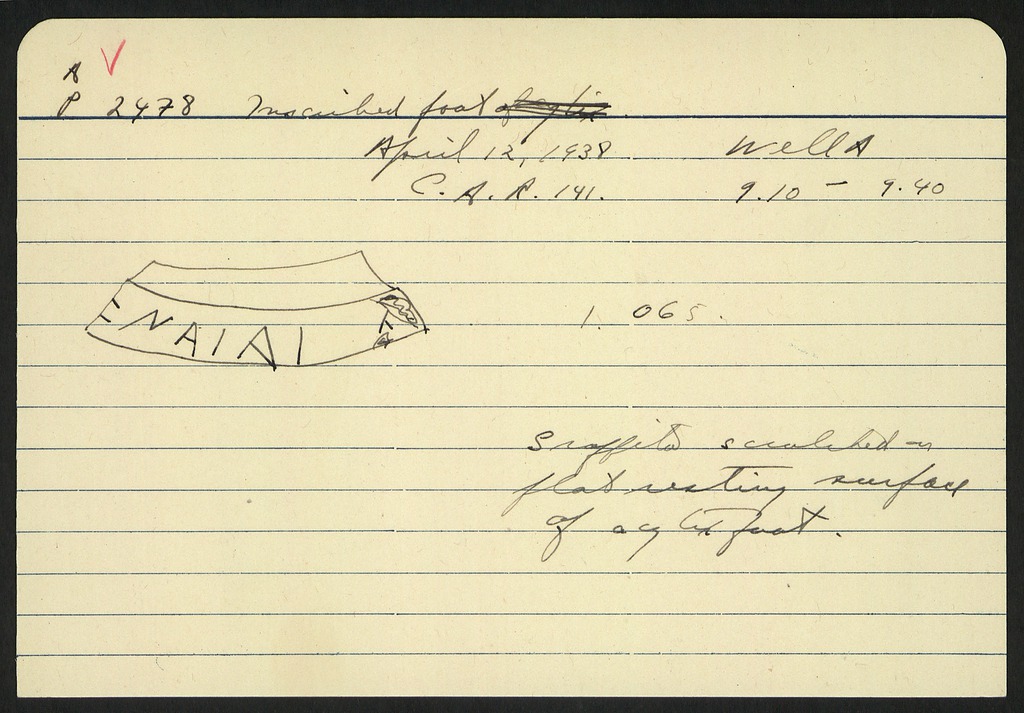 A V
P 2478 Inscribed foot
April 12, 1938 Well A
C. A. R. 141. 9.10 - 9.40
ENAIAI
1. 065.
Graffito scratched on
flat resting surface
of a cylix foot.